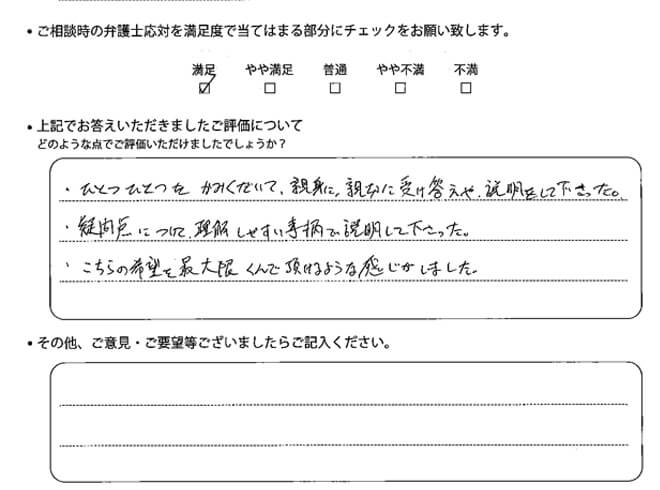 ・ご相談時の弁護士応対を満足度で当てはまる部分にチェックをお願い致します。
満足 やや満足 普通 やや不満 不満
・上記でお答えいただきましたご評価について
どのような点でご評価いただけましたでしょうか？
・ひとつひとつを かみくだいて、親身に、親切に受け答えや、説明をして下さった。
・疑問点について、理解しやすい手柄で説明して下さった。
・こちらの希望を最大限くんで頂けるような感じがしました。
・その他、ご意見・ご要望等ございましたらご記入ください。